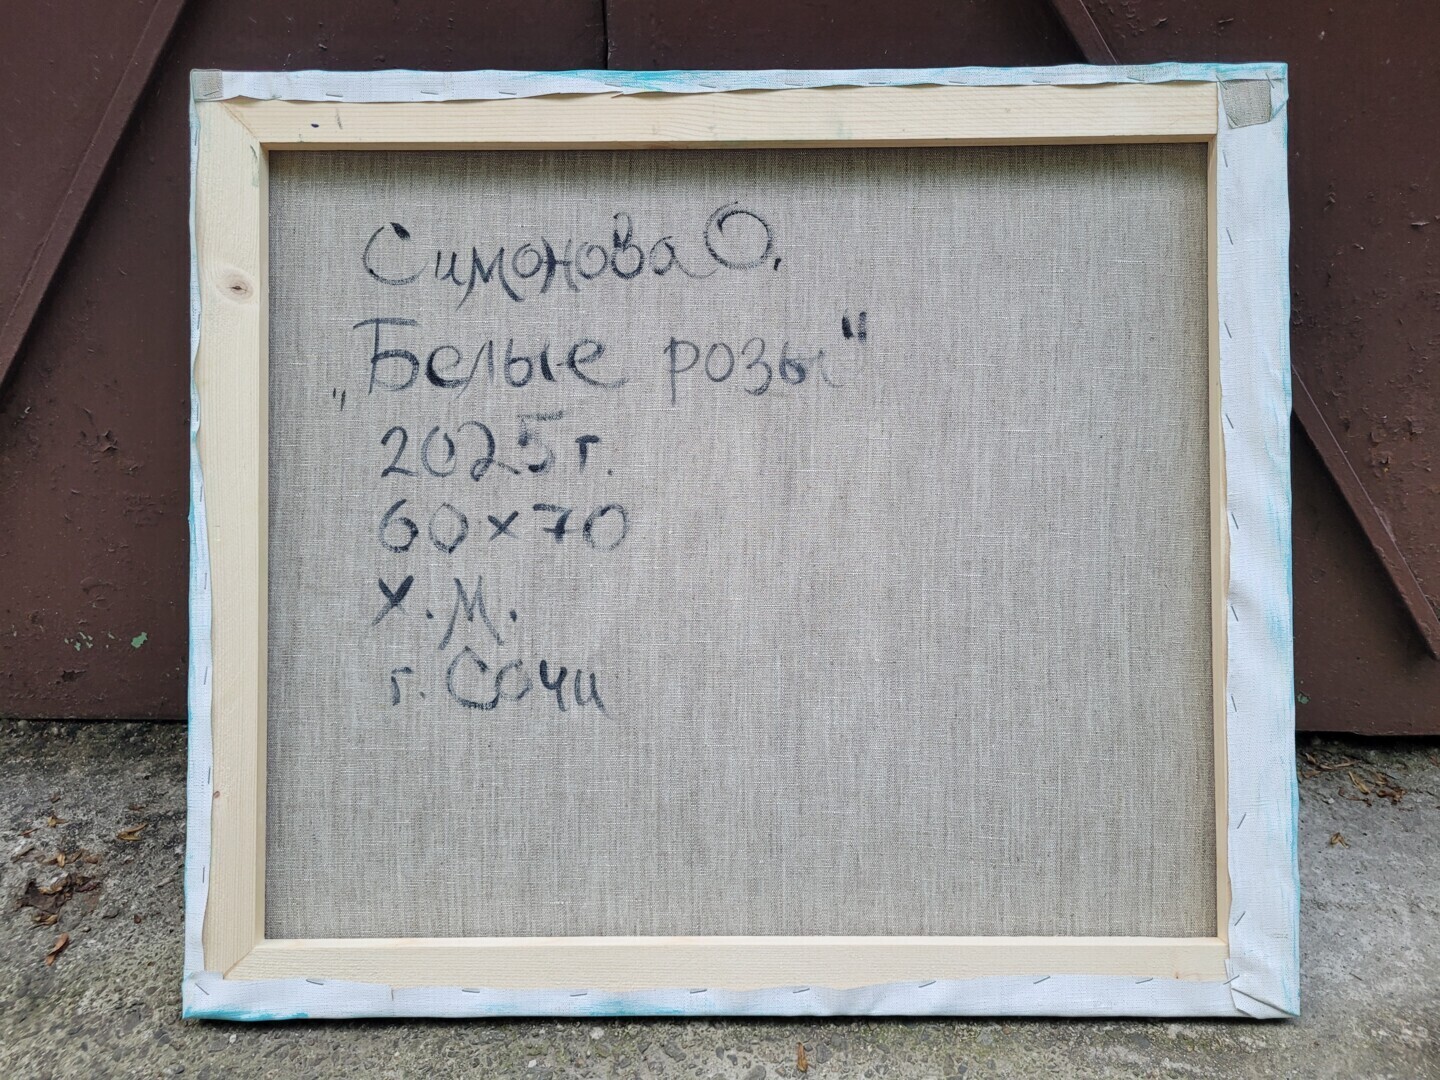 Симонова О.
„Белые розы"
2025г.
60x70
х.м.
г. Сочи